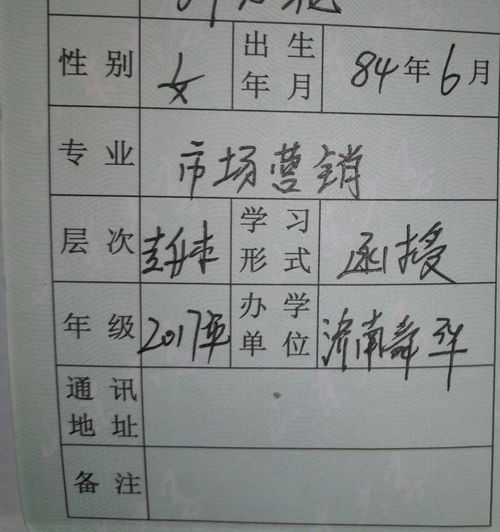 性别 女 出生年月 84年6月
专业 市场营销
层次 专升本 学习形式 函授
年级 2017年 办学单位 济南舜华
通讯地址
备注